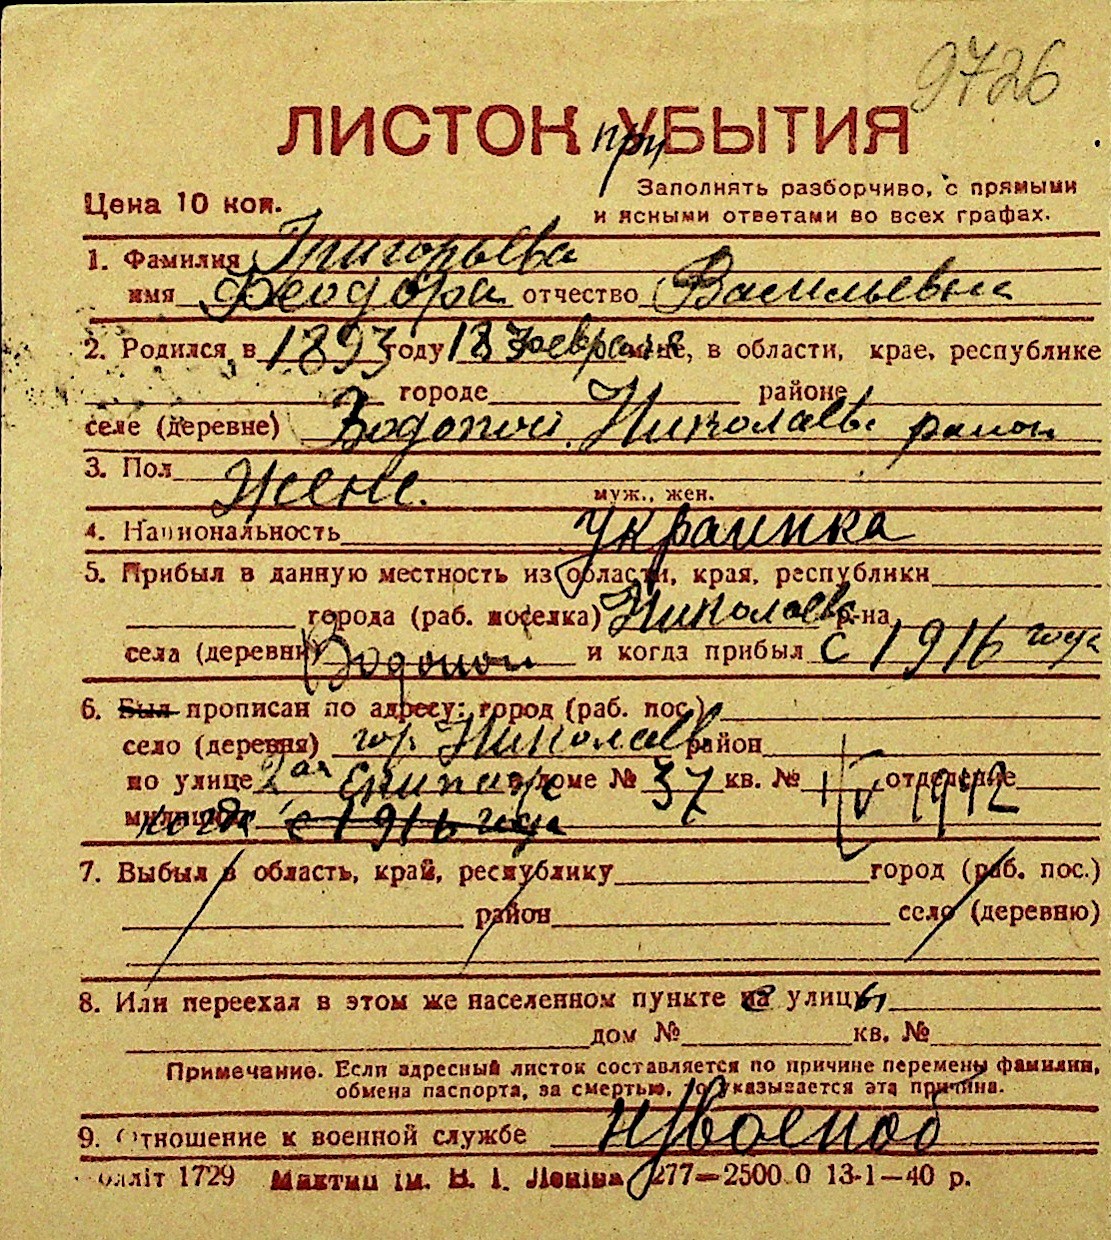 9726
ЛИСТОК при УБЫТИЯ
Цена 10 коп.
Заполнять разборчиво, с прямыми
и ясными ответами во всех графах.
1. Фамилия Григорьева
имя Феодора отчество Васильевна
2. Родился в 1893 году 18 февраля м-це, в области, крае, республике
городе районе
селе (деревне) Водопой Николаевс район
3. Пол Женс.
муж., жен.
4. Национальность Украинка
5. Прибыл в данную местность из области, края, республики
города (раб. поселка) Николаев р-на
села (деревни) Водопой и когда прибыл с 1916 года
6. Был прописан по адресу: город (раб. пос.)
село (деревня) гор. Николаев район
по улице 2ая Экипаж доме № 37 кв. № отделение 1942
милиции когда с 1916 года
7. Выбыл в область, край, республику город (раб. пос.)
район село (деревню)
8. Или переехал в этом же населенном пункте с улицы
дом № кв. №
Примечание. Если адресный листок составляется по причине перемены фамилии,
обмена паспорта, за смертью, то указывается эта причина.
9. Отношение к военной службе н/военоб
лліт 1729 ім. В. І. Леніна 277—2500.0 13-1—40 р.